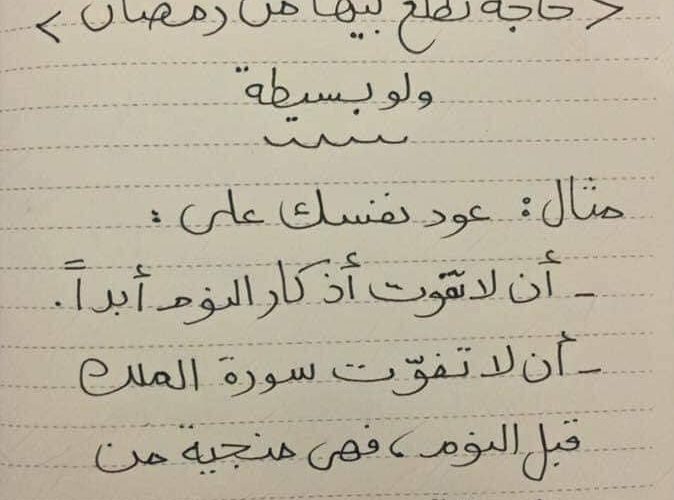 < حاجة تطلع بيها من رمضان >
ولو بسيطة
مثال: عود نفسك على:
- أن لا تفوّت أذكار النوم أبداً.
- أن لا تفوّت سورة الملك
قبل النوم، فهي منجية من